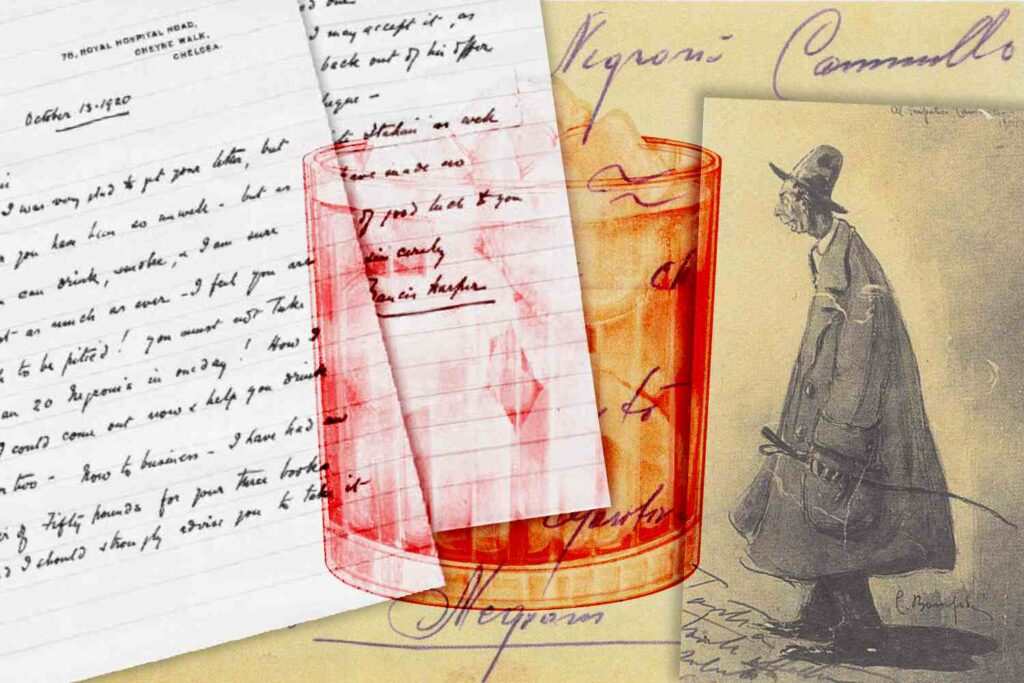 78, ROYAL HOSPITAL ROAD,
CHEYNE WALK,
CHELSEA.
October 13·1920
I was very glad to get your letter, but
you have been so unwell - but as
can drink, smoke, & I am sure
as much as ever - I feel you are
to be pitied! you must not take
an 20 Negronis in one day! How I
I could come out now & help you drink
or two - Now to business - I have had an
of Fifty pounds for your three books
I should strongly advise you to take it
I may accept it, as
back out of his offer
Italian as well
have made no
of good luck to you
sincerely
Francis Harper
Negroni Cammillo
to
Negroni